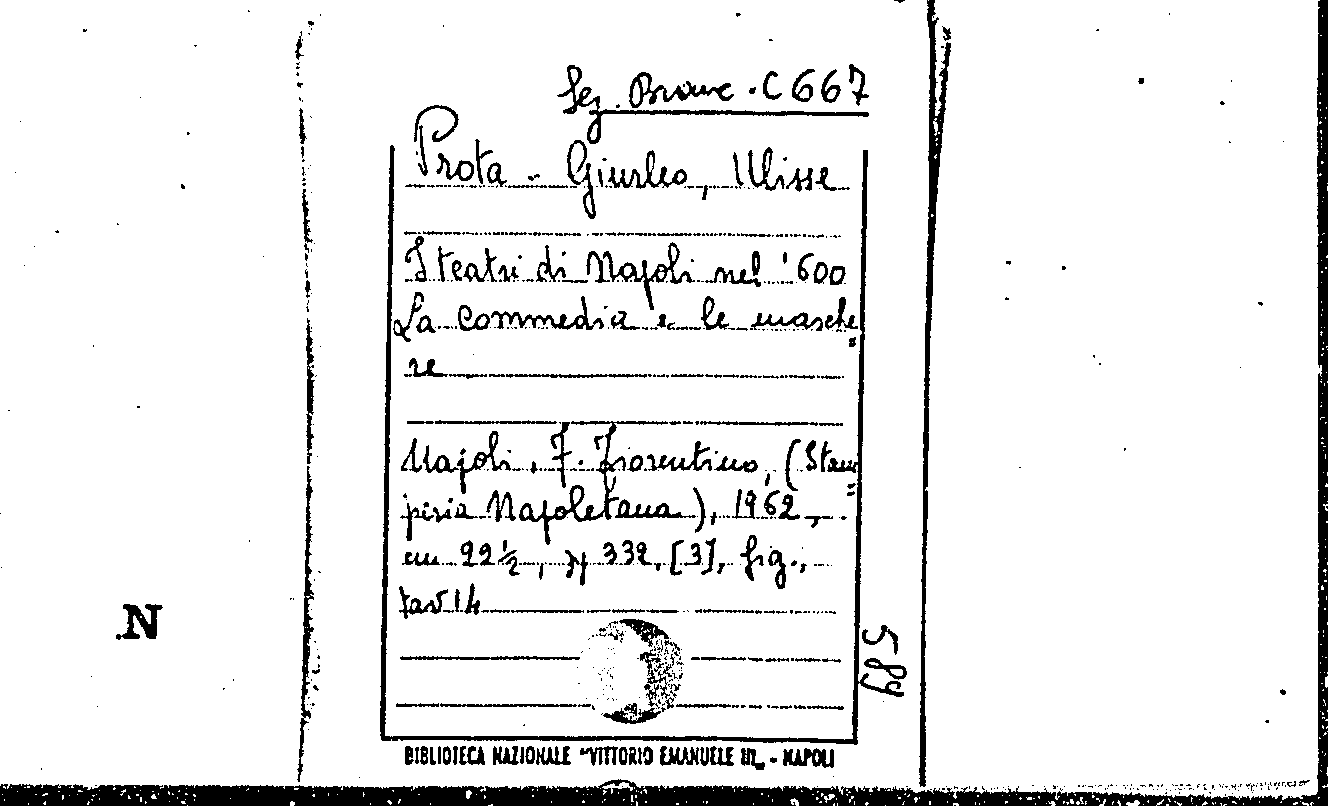 Sez. Branc. C 667
Prota - Giurleo, Ulisse
I teatri di Napoli nel '600
La commedia e le masche=
re
Napoli, F. Fiorentino, (Stam=
peria Napoletana), 1962,
cm 22½, pp 332, [3], fig.,
tav 14
589
N
BIBLIOTECA NAZIONALE "VITTORIO EMANUELE III„ - NAPOLI